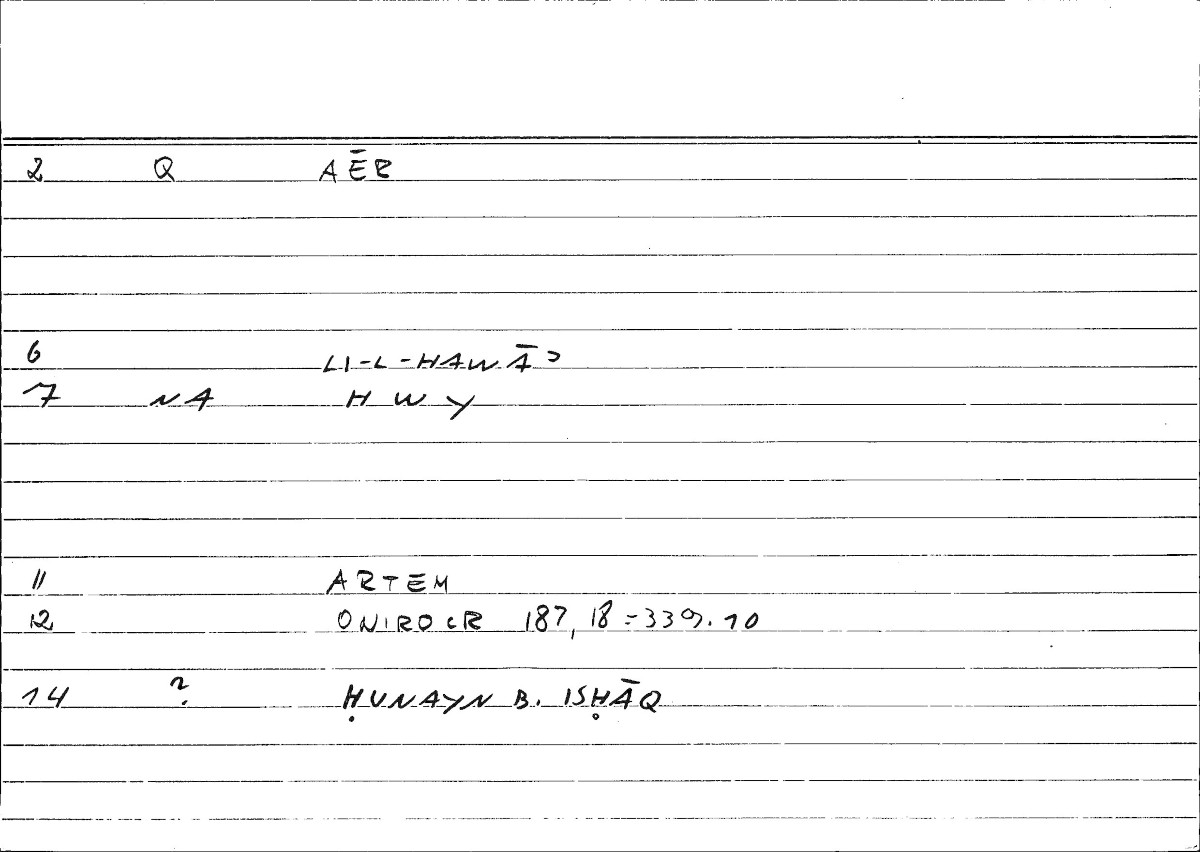 2 Q AĒR
6 LI-L-HAWĀʾ
7 NA HWY
11 ARTEM
12 ONIROCR 187, 18 = 339.10
14 ? ḤUNAYN B. ISḤĀQ